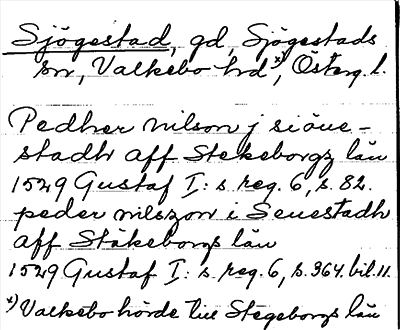 Sjögestad, gd, Sjögestads
sn, Valkebo hd*), Österg. l.
Pedher nilson j siöue-
stadh aff Stekeborgz län
1529 Gustaf I: s reg. 6, s. 82.
peder nilszon i Seuestadh
aff Stäkeborgs län
1529 Gustaf I: s. reg. 6, s. 364. bil. 11.
*) Valkebo hörde till Stegeborgs län